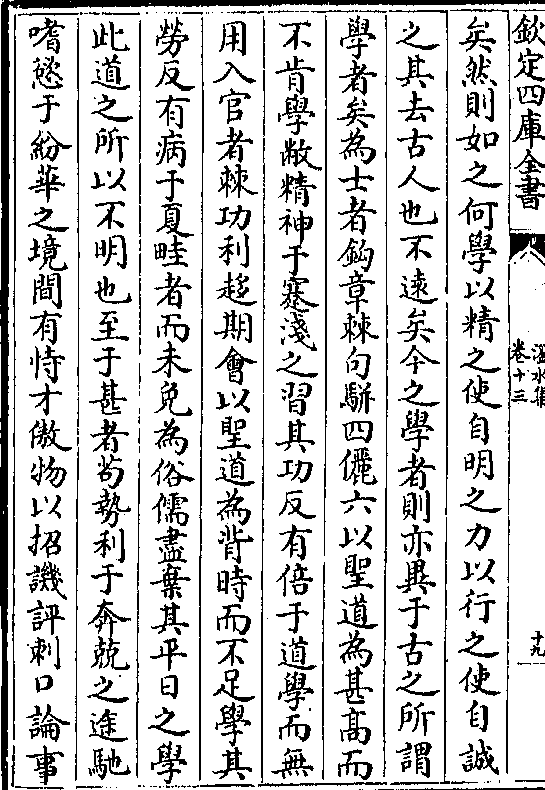 欽定四庫全書
滏水集
卷十三
十九
矣然則如之何學以精之使自明之力以行之使自誠
之其去古人也不遠矣今之學者則亦異于古之所謂
學者矣為士者鈎章棘句駢四儷六以聖道為甚髙而
不肯學敝精神于蹇淺之習其功反有倍于道學而無
用入官者棘功利趍期會以聖道為背時而不足學其
勞反有病于夏畦者而未免為俗儒盡棄其平日之學
此道之所以不明也至于甚者苟勢利于奔競之逵馳
嗜慾于紛華之境間有恃才傲物以招譏評刺口論事